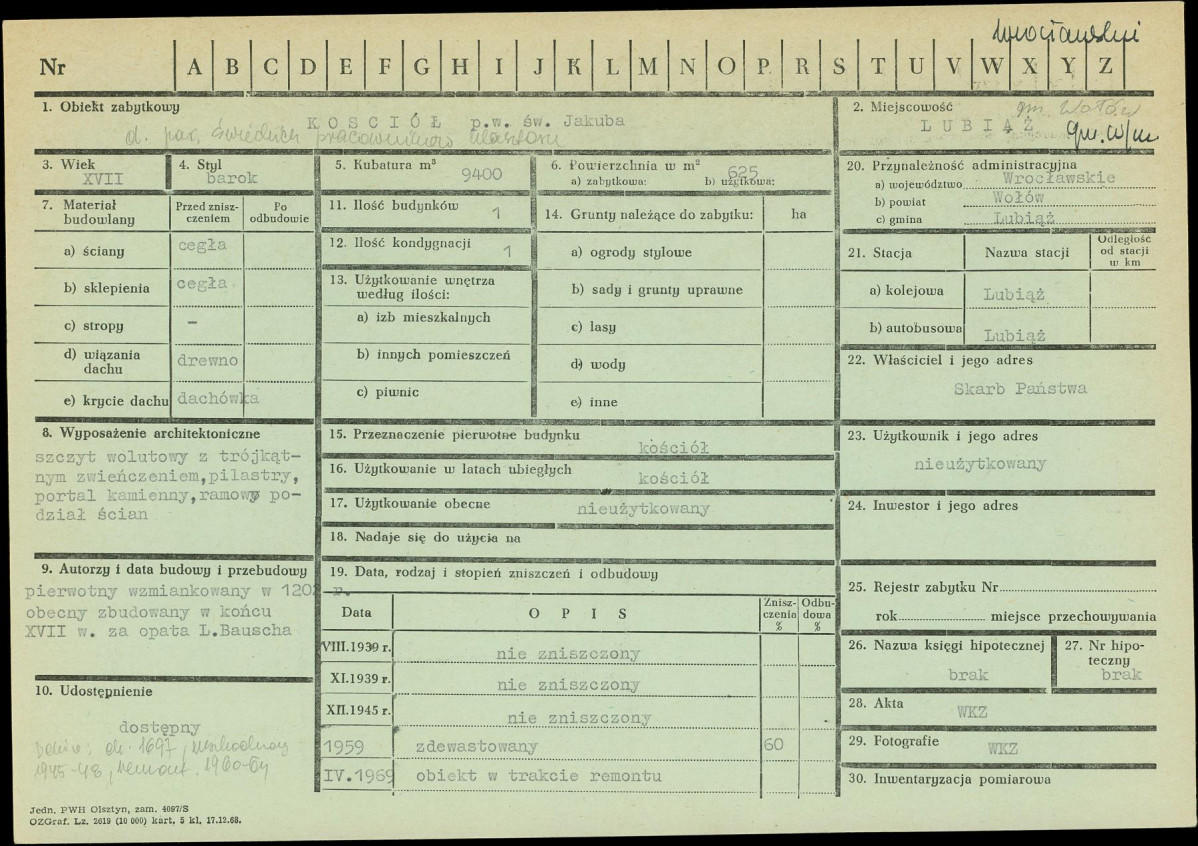 wrocławski
Nr A B C D E F G H I J K L M N O P R S T U V W X Y Z
1. Obiekt zabytkowy
KOŚCIÓŁ p.w. św. Jakuba
d. par. pracowników klasztoru
2. Miejscowość
gm. Wołów
LUBIĄŻ
gm. w/m
3. Wiek
XVII
4. Styl
barok
5. Kubatura m³
9400
6. Powierzchnia w m²
625
a) zabytkowa: b) użytkowa:
7. Materiał budowlany
Przed zniszczeniem
Po odbudowie
a) ściany cegła
b) sklepienia cegła
c) stropy –
d) wiązania dachu drewno
e) krycie dachu dachówka
8. Wyposażenie architektoniczne
szczyt wolutowy z trójkąt-
nym zwieńczeniem,pilastry,
portal kamienny,ramowy po-
dział ścian
9. Autorzy i data budowy i przebudowy
pierwotny wzmiankowany w 1202 r.
obecny zbudowany w końcu
XVII w. za opata L.Bauscha
10. Udostępnienie
dostępny
1697, uszkodzony
1945-48, remont. 1960-64
11. Ilość budynków 1
12. Ilość kondygnacji 1
13. Użytkowanie wnętrza
według ilości:
a) izb mieszkalnych
b) innych pomieszczeń
c) piwnic
14. Grunty należące do zabytku: ha
a) ogrody stylowe
b) sady i grunty uprawne
c) lasy
d) wody
e) inne
15. Przeznaczenie pierwotne budynku
kościół
16. Użytkowanie w latach ubiegłych
kościół
17. Użytkowanie obecne nieużytkowany
18. Nadaje się do użycia na
19. Data, rodzaj i stopień zniszczeń i odbudowy
Data OPIS Zniszczenia % Odbudowa %
VIII.1939 r. nie zniszczony
XI.1939 r. nie zniszczony
XII.1945 r. nie zniszczony
1959 zdewastowany 60
IV.1969 obiekt w trakcie remontu
20. Przynależność administracyjna
a) województwo Wrocławskie
b) powiat Wołów
c) gmina Lubiąż
21. Stacja Nazwa stacji Odległość od stacji w km
a) kolejowa Lubiąż
b) autobusowa Lubiąż
22. Właściciel i jego adres
Skarb Państwa
23. Użytkownik i jego adres
nieużytkowany
24. Inwestor i jego adres
25. Rejestr zabytku Nr
rok miejsce przechowywania
26. Nazwa księgi hipotecznej
brak
27. Nr hipoteczny
brak
28. Akta
WKZ
29. Fotografie
WKZ
30. Inwentaryzacja pomiarowa
Jedn. PWH Olsztyn, zam. 4097/S
OZGraf. Lz. 2619 (10 000) kart, 5 kl. 17.12.68.